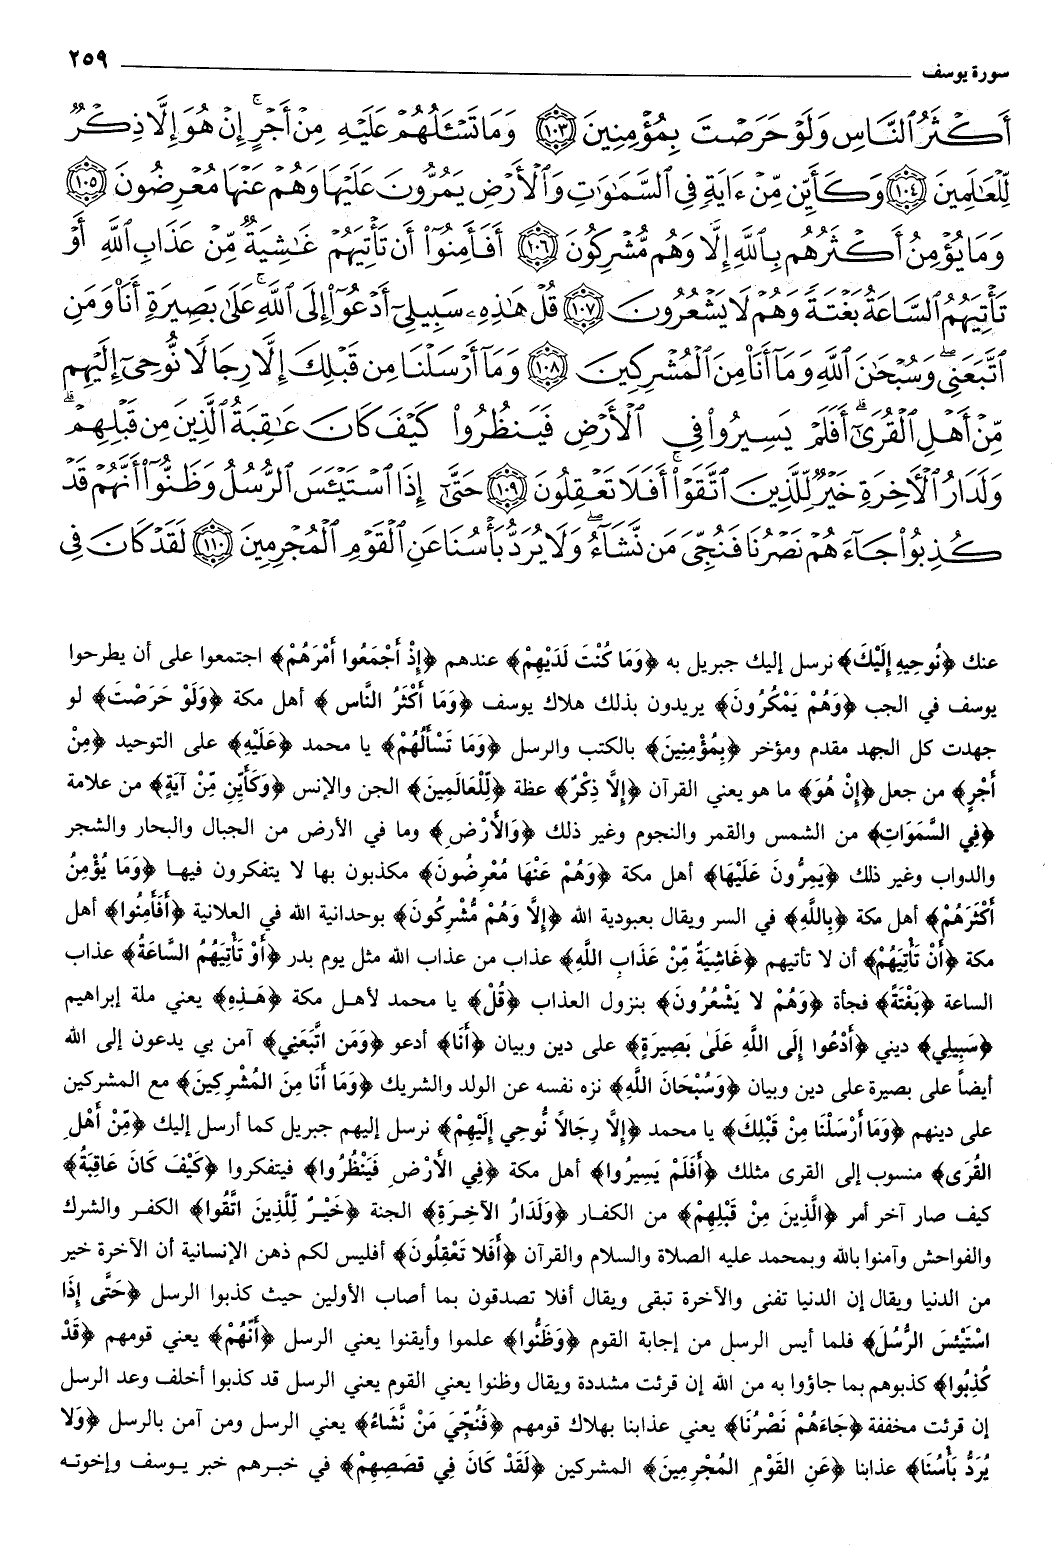 سورة يوسف ٢٥٩
أَكْثَرُ ٱلنَّاسِ وَلَوْ حَرَصْتَ بِمُؤْمِنِينَ ١٠٣ وَمَا تَسْـَٔلُهُمْ عَلَيْهِ مِنْ أَجْرٍ ۚ إِنْ هُوَ إِلَّا ذِكْرٌ
لِّلْعَـٰلَمِينَ ١٠٤ وَكَأَيِّن مِّنْ ءَايَةٍ فِى ٱلسَّمَـٰوَٰتِ وَٱلْأَرْضِ يَمُرُّونَ عَلَيْهَا وَهُمْ عَنْهَا مُعْرِضُونَ ١٠٥
وَمَا يُؤْمِنُ أَكْثَرُهُم بِٱللَّهِ إِلَّا وَهُم مُّشْرِكُونَ ١٠٦ أَفَأَمِنُوٓا۟ أَن تَأْتِيَهُمْ غَـٰشِيَةٌ مِّنْ عَذَابِ ٱللَّهِ أَوْ
تَأْتِيَهُمُ ٱلسَّاعَةُ بَغْتَةً وَهُمْ لَا يَشْعُرُونَ ١٠٧ قُلْ هَـٰذِهِۦ سَبِيلِىٓ أَدْعُوٓا۟ إِلَى ٱللَّهِ ۚ عَلَىٰ بَصِيرَةٍ أَنَا۠ وَمَنِ
ٱتَّبَعَنِى ۖ وَسُبْحَـٰنَ ٱللَّهِ وَمَآ أَنَا۠ مِنَ ٱلْمُشْرِكِينَ ١٠٨ وَمَآ أَرْسَلْنَا مِن قَبْلِكَ إِلَّا رِجَالًا نُّوحِىٓ إِلَيْهِم
مِّنْ أَهْلِ ٱلْقُرَىٰٓ ۗ أَفَلَمْ يَسِيرُوا۟ فِى ٱلْأَرْضِ فَيَنظُرُوا۟ كَيْفَ كَانَ عَـٰقِبَةُ ٱلَّذِينَ مِن قَبْلِهِمْ ۗ
وَلَدَارُ ٱلْأَخِرَةِ خَيْرٌ لِّلَّذِينَ ٱتَّقَوْا۟ ۚ أَفَلَا تَعْقِلُونَ ١٠٩ حَتَّىٰٓ إِذَا ٱسْتَيْـَٔسَ ٱلرُّسُلُ وَظَنُّوٓا۟ أَنَّهُمْ قَدْ
كُذِبُوا۟ جَآءَهُمْ نَصْرُنَا فَنُجِّىَ مَن نَّشَآءُ ۖ وَلَا يُرَدُّ بَأْسُنَا عَنِ ٱلْقَوْمِ ٱلْمُجْرِمِينَ ١١٠ لَقَدْ كَانَ فِى
عنك ﴿نُوحِيهِ إِلَيْكَ﴾ نرسل إليك جبريل به ﴿وَمَا كُنْتَ لَدَيْهِمْ﴾ عندهم ﴿إِذْ أَجْمَعُوا أَمْرَهُمْ﴾ اجتمعوا على أن يطرحوا
يوسف في الجب ﴿وَهُمْ يَمْكُرُونَ﴾ يريدون بذلك هلاك يوسف ﴿وَمَا أَكْثَرُ النَّاسِ﴾ أهل مكة ﴿وَلَوْ حَرَصْتَ﴾ لو
جهدت كل الجهد مقدم ومؤخر ﴿بِمُؤْمِنِينَ﴾ بالكتب والرسل ﴿وَمَا تَسْأَلُهُمْ﴾ يا محمد ﴿عَلَيْهِ﴾ على التوحيد ﴿مِنْ
أَجْرٍ﴾ من جعل ﴿إِنْ هُوَ﴾ ما هو يعني القرآن ﴿إِلَّا ذِكْرٌ﴾ عظة ﴿لِّلْعَالَمِينَ﴾ الجن والإنس ﴿وَكَأَيِّن مِّنْ آيَةٍ﴾ من علامة
﴿فِي السَّمَوَاتِ﴾ من الشمس والقمر والنجوم وغير ذلك ﴿وَالأَرْضِ﴾ وما في الأرض من الجبال والبحار والشجر
والدواب وغير ذلك ﴿يَمِرُّونَ عَلَيْهَا﴾ أهل مكة ﴿وَهُمْ عَنْهَا مُعْرِضُونَ﴾ مكذبون بها لا يتفكرون فيها ﴿وَمَا يُؤْمِنُ
أَكْثَرَهُمْ﴾ أهل مكة ﴿بِاللَّهِ﴾ في السر ويقال بعبودية الله ﴿إِلَّا وَهُمْ مُّشْرِكُونَ﴾ بوحدانية الله في العلانية ﴿أَفَأَمِنُوا﴾ أهل
مكة ﴿أَنْ تَأْتِيَهُمْ﴾ أن لا تأتيهم ﴿غَاشِيَةٌ مِّنْ عَذَابِ اللَّهِ﴾ عذاب من عذاب الله مثل يوم بدر ﴿أَوْ تَأْتِيَهُمُ السَّاعَةُ﴾ عذاب
الساعة ﴿بَغْتَةً﴾ فجأة ﴿وَهُمْ لا يَشْعُرُونَ﴾ بنزول العذاب ﴿قُلْ﴾ يا محمد لأهل مكة ﴿هَـذِهِ﴾ يعني ملة إبراهيم
﴿سَبِيلِي﴾ ديني ﴿أَدْعُوا إِلَى اللَّهِ عَلَىٰ بَصِيرَةٍ﴾ على دين وبيان ﴿أَنَا﴾ أدعو ﴿وَمَنِ اتَّبَعَنِي﴾ آمن بي يدعون إلى الله
أيضاً على بصيرة على دين وبيان ﴿وَسُبْحَانَ اللَّهِ﴾ نزه نفسه عن الولد والشريك ﴿وَمَا أَنَا مِنَ المُشْرِكِينَ﴾ مع المشركين
على دينهم ﴿وَمَا أَرْسَلْنَا مِنْ قَبْلِكَ﴾ يا محمد ﴿إِلَّا رِجَالاً نُّوحِي إِلَيْهِمْ﴾ نرسل إليهم جبريل كما أرسل إليك ﴿مِّنْ أَهْلِ
القُرَى﴾ منسوب إلى القرى مثلك ﴿أَفَلَمْ يَسِيرُوا﴾ أهل مكة ﴿فِي الأَرْضِ فَيَنْظُرُوا﴾ فيتفكروا ﴿كَيْفَ كَانَ عَاقِبَةُ﴾
كيف صار آخر أمر ﴿الَّذِينَ مِنْ قَبْلِهِمْ﴾ من الكفار ﴿وَلَدَارُ الآخِرَةِ﴾ الجنة ﴿خَيْرٌ لِّلَّذِينَ اتَّقُوا﴾ الكفر والشرك
والفواحش وآمنوا بالله وبمحمد عليه الصلاة والسلام والقرآن ﴿أَفَلا تَعْقِلُونَ﴾ أفليس لكم ذهن الإنسانية أن الآخرة خير
من الدنيا ويقال إن الدنيا تفنى والآخرة تبقى ويقال أفلا تصدقون بما أصاب الأولين حيث كذبوا الرسل ﴿حَتَّى إِذَا
اسْتَيْئَسَ الرُّسُلَ﴾ فلما أيس الرسل من إجابة القوم ﴿وَظَنُّوا﴾ علموا وأيقنوا يعني الرسل ﴿أَنَّهُمْ﴾ يعني قومهم ﴿قَدْ
كُذِبُوا﴾ كذبوهم بما جاؤوا به من الله إن قرئت مشددة ويقال وظنوا يعني القوم يعني الرسل قد كذبوا أخلف وعد الرسل
إن قرئت مخففة ﴿جَاءَهُمْ نَصْرُنَا﴾ يعني عذابنا بهلاك قومهم ﴿فَنُجِّيَ مَنْ نَّشَاءُ﴾ يعني الرسل ومن آمن بالرسل ﴿وَلا
يُرَدُّ بَأْسُنَا﴾ عذابنا ﴿عَنِ القَوْمِ المُجْرِمِينَ﴾ المشركين ﴿لَقَدْ كَانَ فِي قَصَصِهِمْ﴾ في خبرهم خبر يوسف وإخوته